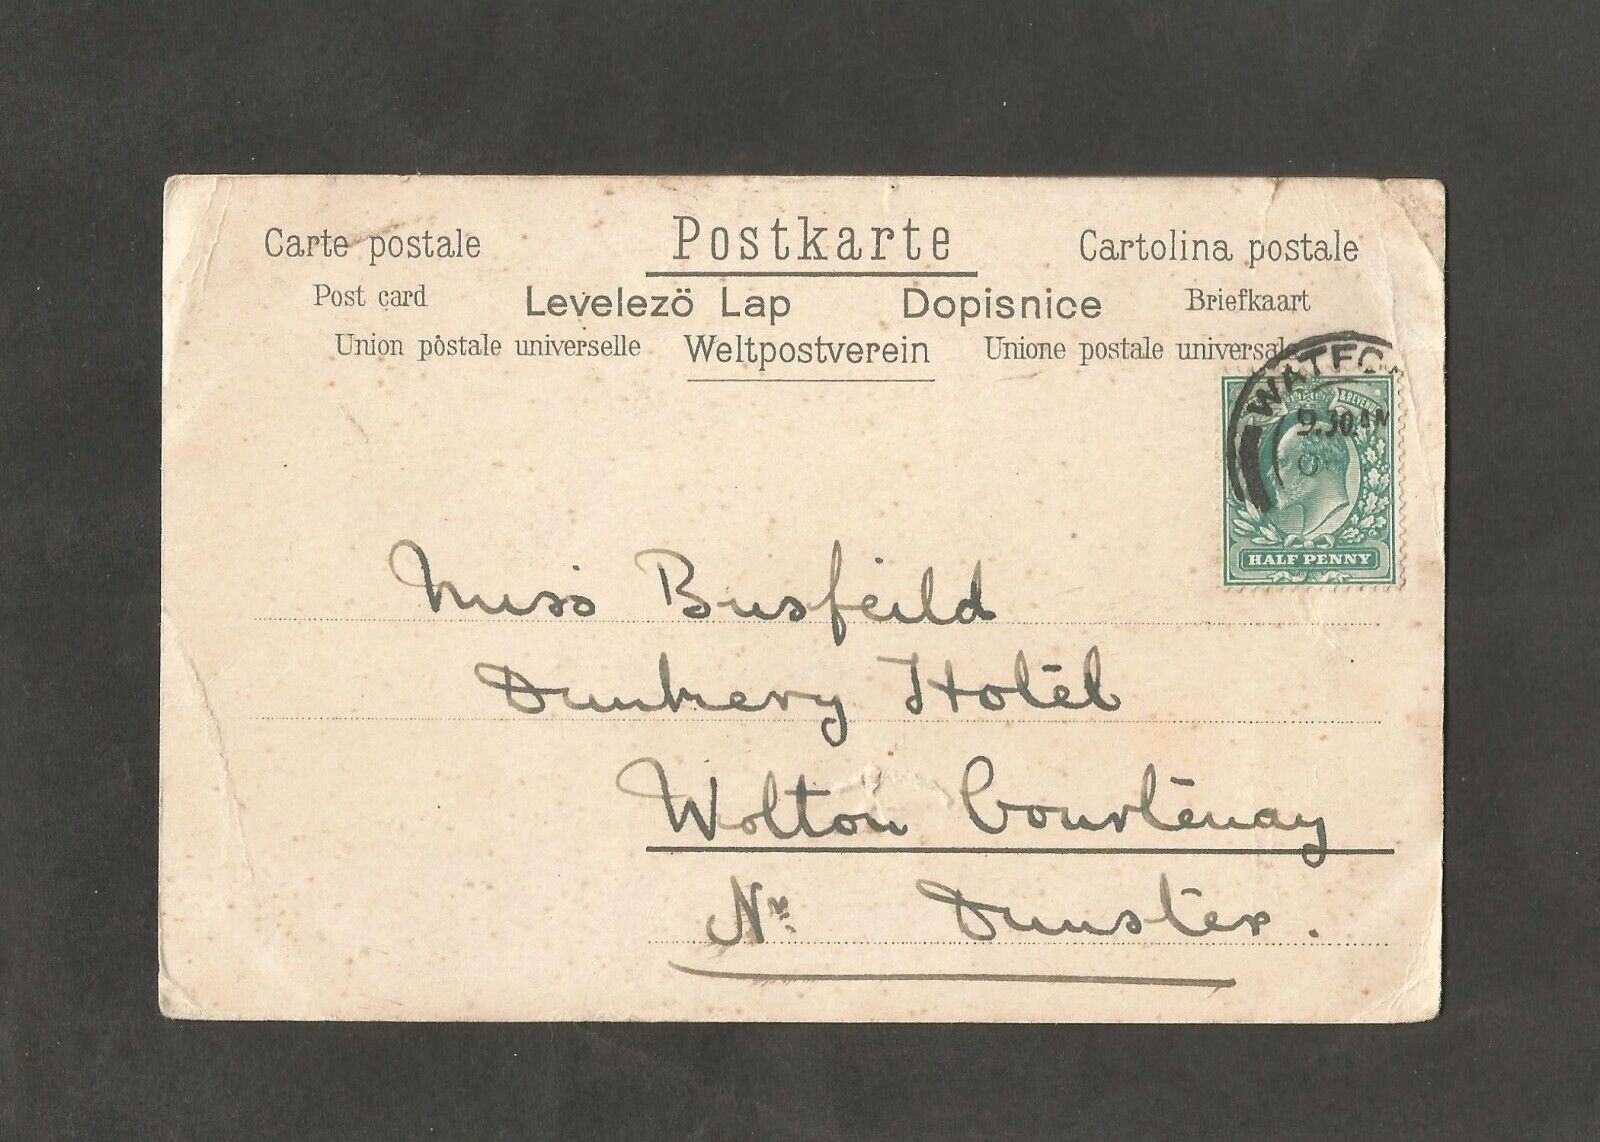 Carte postale Postkarte Cartolina postale
Post card Levelező Lap Dopisnice Briefkaart
Union postale universelle Weltpostverein Unione postale universale
WATFO
& REVENUE
9.30 AM
HALF PENNY
Miss Busfeild
Dunkery Hotel
Wolton Courtenay
Nr. Dunster.